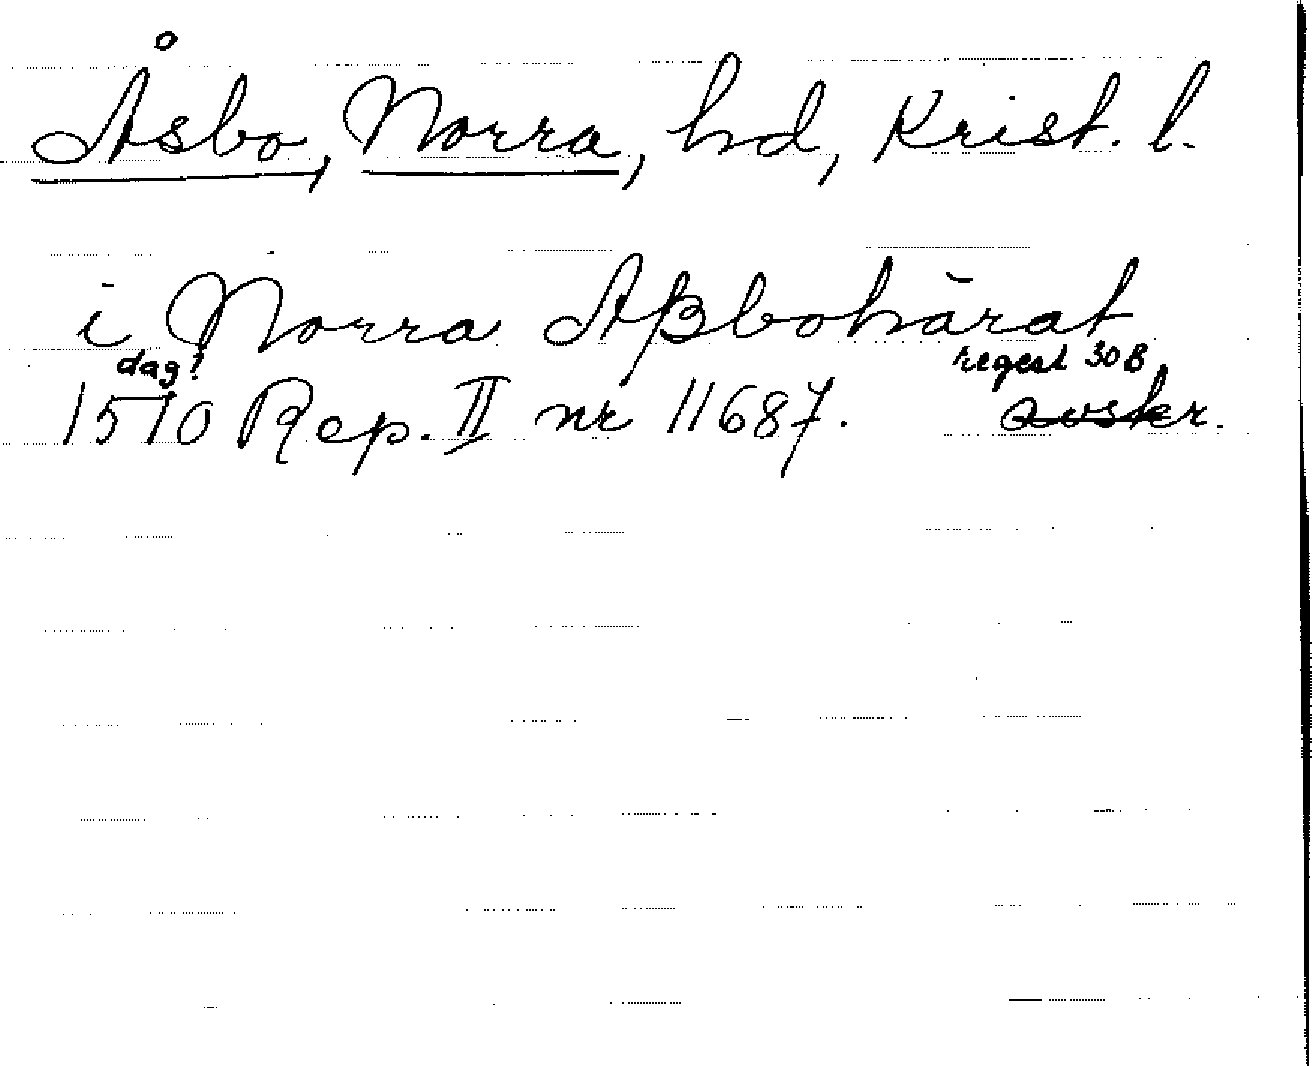 Åsbo, Norra, hd, Krist. l.
i Norra Aßbohārat
dag! regest 30B
1510 Rep. II nr 11687. avskr.